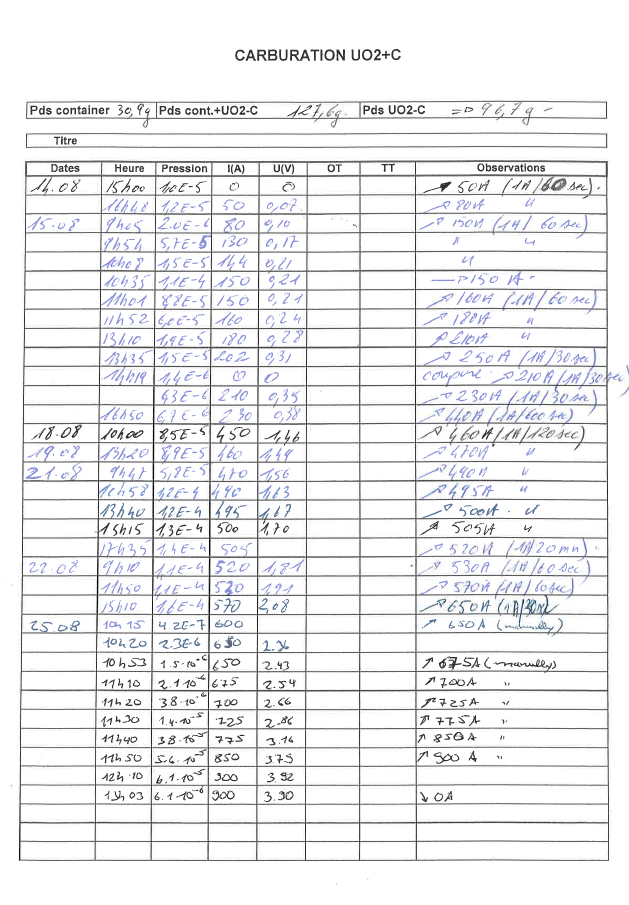 CARBURATION UO2+C
Pds container 30,9g Pds cont.+UO2-C 127,6g. Pds UO2-C => 96,7g -
Titre
Dates Heure Pression I(A) U(V) OT TT Observations
14.08 15h00 1,0E-5 0 0 ↗ 50A (1A/60sec).
16h48 1,2E-5 50 0,07. ↗ 80A "
15.08 9h05 2.0E-6 80 0,10 ↗ 150A (1A/ 60sec)
9h54 5,7E-5 130 0,17 " "
10h08 1,5E-5 144 0,21 "
10h35 1,1E-4 150 0,21 → 150 A.
11h01 8,8E-5 150 0,21 ↗ 160A (1A/60sec)
11h52 6,0E-5 160 0,24 ↗ 180A "
13h10 1,9E-5 180 0,28 ↗ 210A "
13h35 1,5E-5 202 0,31 ↗ 250A (1A/30sec)
14h19 1,4E-6 0 0 coupure ↗ 210A (1A/30sec)
9,3E-6 210 0,35 ↗ 230A (1A/30sec)
16h50 6,7E-6 230 0,38 ↗ 440A (1A/600sec)
18.08 10h00 8,5E-5 450 1,46 ↗ 460A (1A/120sec)
19.08 13h20 8,9E-5 460 1,49 ↗ 470A "
21.08 9h47 5,8E-5 470 1,56 ↗ 490A "
10h58 1,2E-4 490 1,63 ↗ 495A "
13h40 1,2E-4 495 1,67 ↗ 500A. "
15h15 1,3E-4 500 1,70 ↗ 505A "
17h35 1,4E-4 505 ↗ 520A (1A/20mn).
22.08 9h10 1,1E-4 520 1,81 ↗ 530A (1A/60sec)
11h50 1,1E-4 530 1,91 ↗ 570A (1A/60sec)
15h10 1,6E-4 570 2,08 ↗ 650A (1A/30
25.08 10h15 4.2E-7 600 ↗ 650A (manually)
10h20 2.3E-6 650 2.36
10h53 1.5.10-6 650 2.43 ↗ 675A (manually)
11h10 2.1.10-6 675 2.54 ↗ 700A "
11h20 3.8.10-6 700 2.66 ↗ 725A "
11h30 1.4.10-5 725 2.86 ↗ 775A "
11h40 3.8.10-5 775 3.16 ↗ 850A "
11h50 5.6.10-5 850 3.75 ↗ 900A "
12h10 6.1.10-5 900 3.92
13h03 6.1.10-6 900 3.90 ↘ 0A